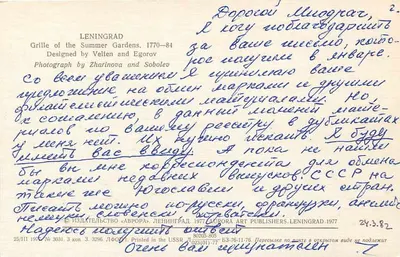 2.
Дорогой Миодраг,
LENINGRAD
Grille of the Summer Gardens. 1770—84
Designed by Velten and Egorov
Photograph by Zharinova and Sobolev
Я могу поблагодарить
за ваше письмо, кото-
рое получил в январе.
Со всем уважением я принимаю ваше
предложение, на обмен марками и другими
филателистическими материалами. Но,
к сожалению, в данный момент мате-
риалов по вашему реестру в дубликатах
у меня нет. Их нужно искать. Я буду
иметь вас ввиду. А пока не нашли
бы вы мне корреспондента для обмена
марками недавних выпусков: СССР на
такие же Югославии и других стран.
Писать можно по-русски, французски, англий-
немецки словенски, хорватски.
© ИЗДАТЕЛЬСТВО «АВРОРА». ЛЕНИНГРАД. 1977
AURORA ART PUBLISHERS. LENINGRAD. 1977
Надеюсь получить ответ
24.3.82
Printed in the USSR
Очень вам признателен